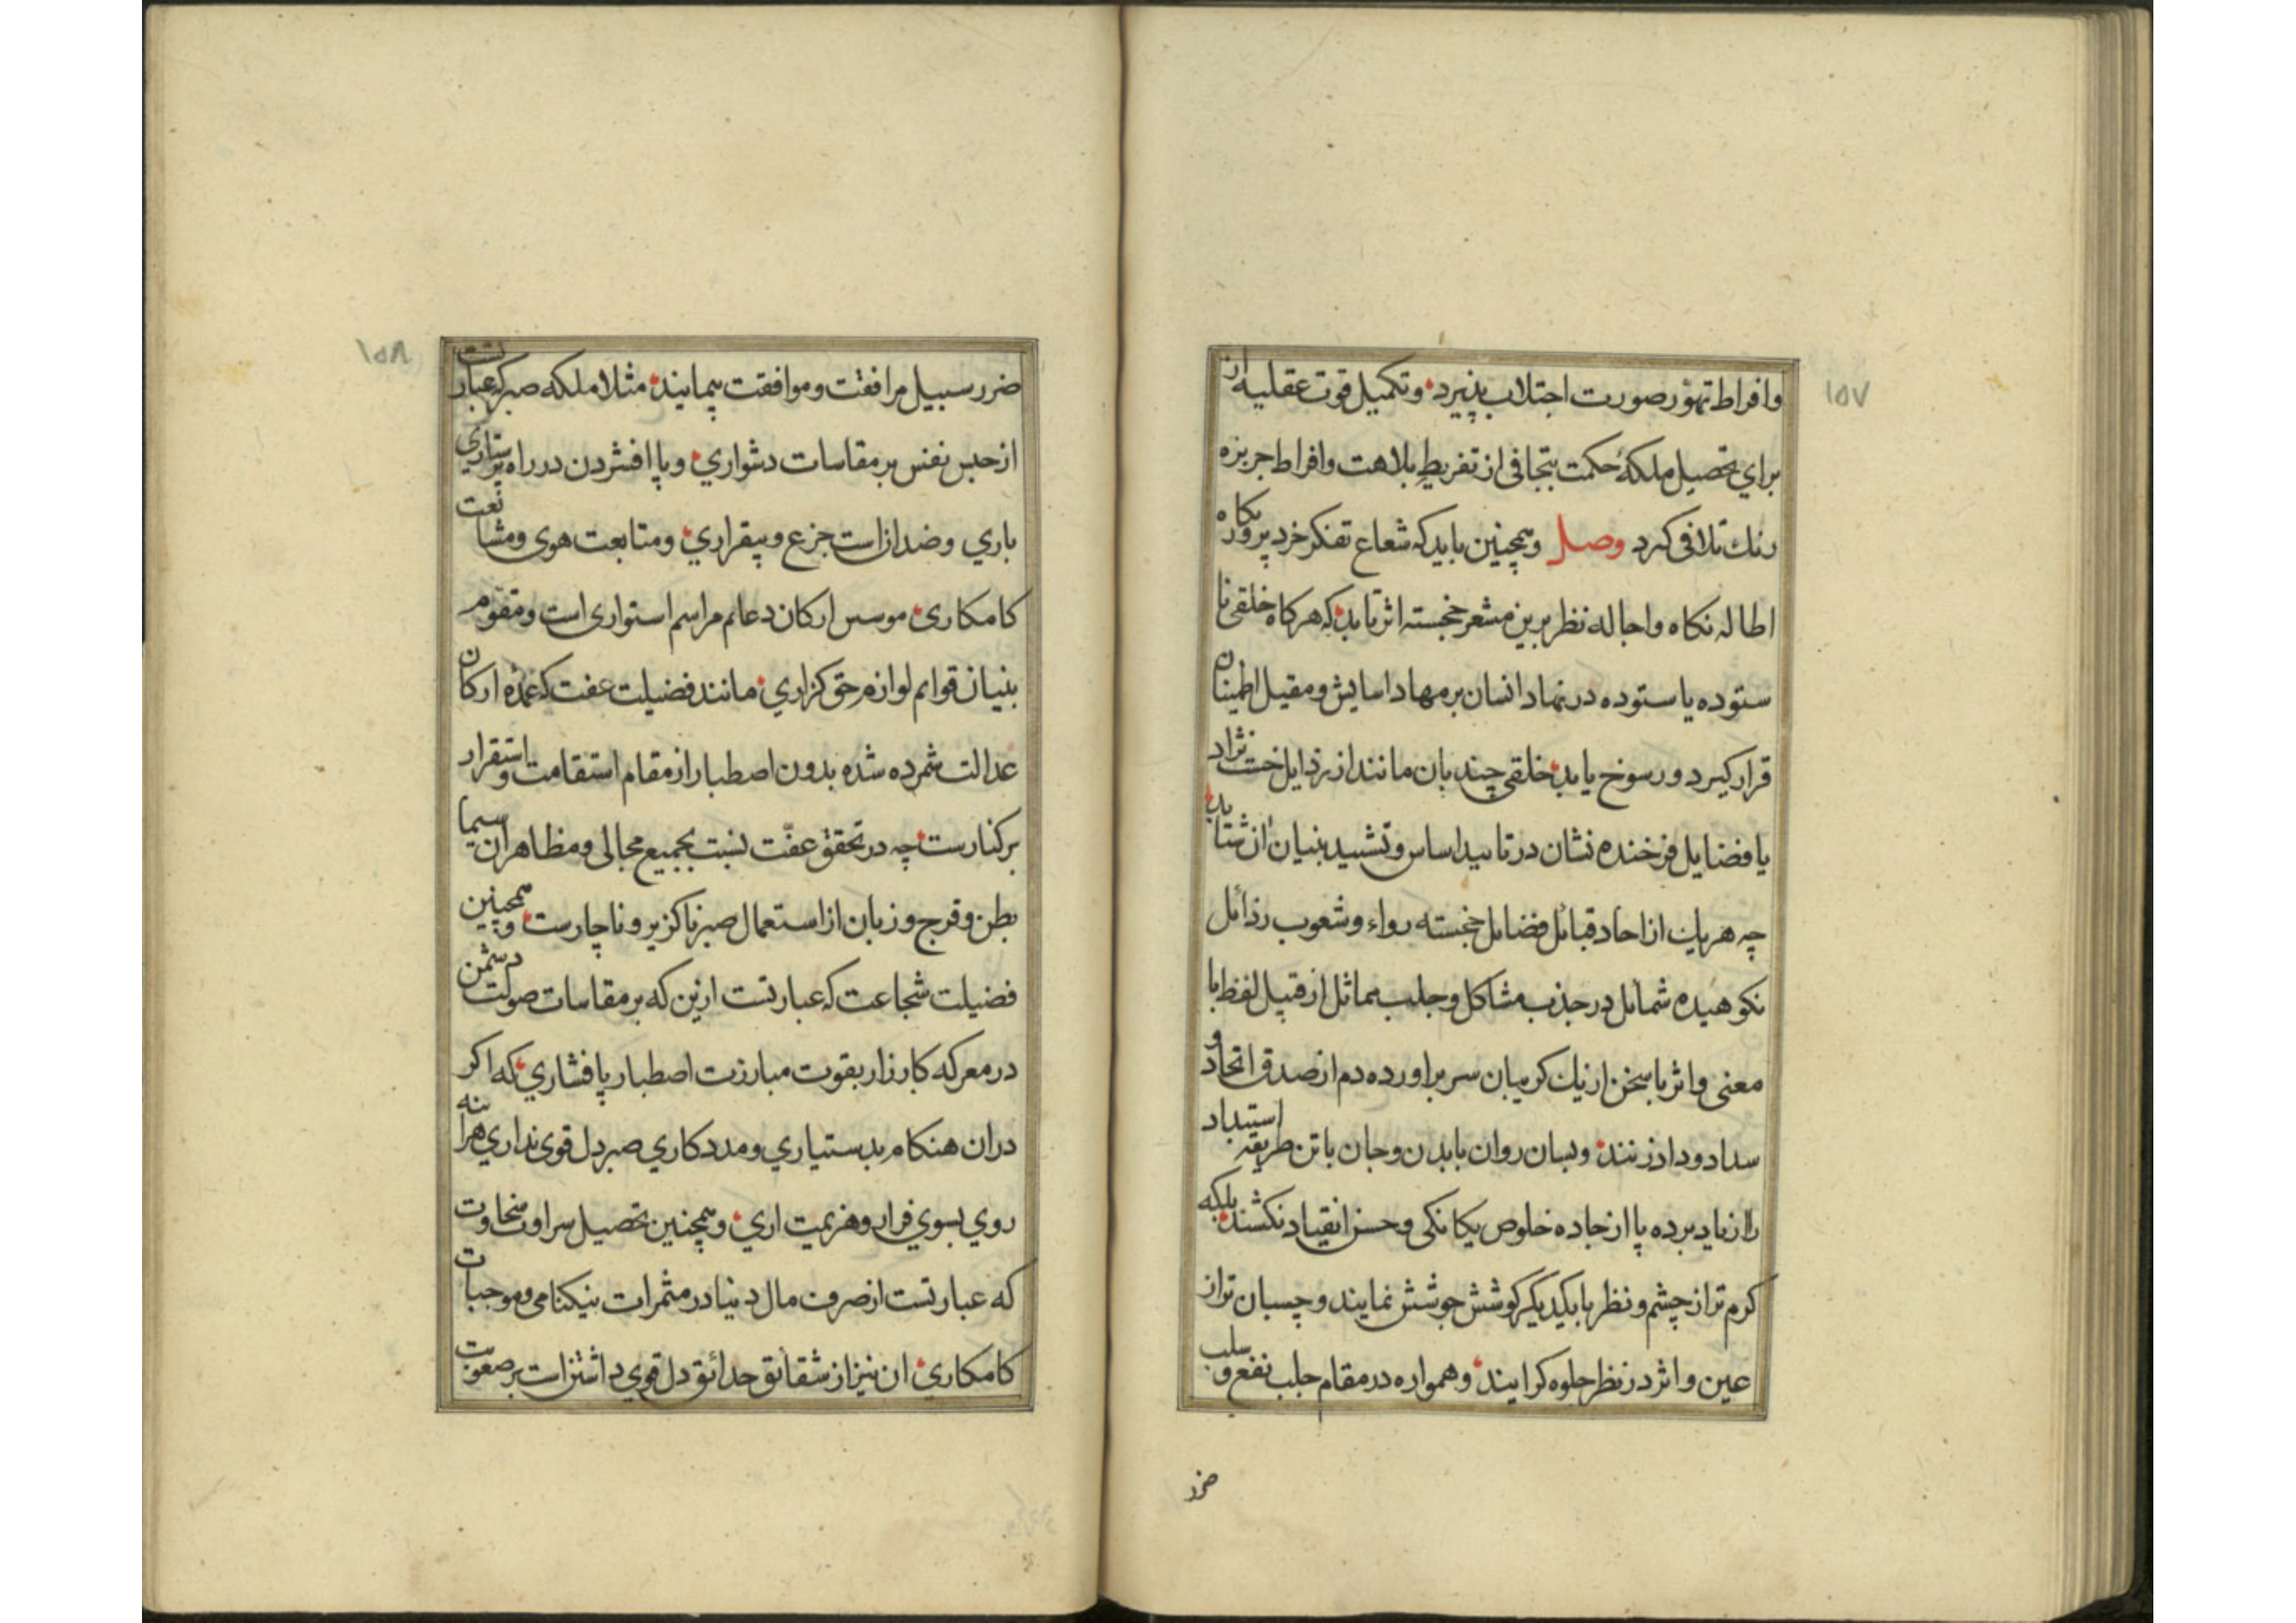 ۱۵۷
وافراط تهوّر صورت اجتلاب پذیرد وتکمیل قوت عقلیه از
برای تحصیل ملکهٔ حکمت بتجافی از تفریطِ بلاهت وافراط جربزه
رنك تلافی کرد وصل وهمچنین باید که شعاع تفکر خرد پرور بکاه
اطاله نکاه واجاله نظر برین مشعر خجسته اثر تابد که هرکاه خلقی نا
ستوده یا ستوده در نهاد انسان بر مهاد اسایش ومقیل اطمینان
قرار کیرد ورسوخ یابد خلقی چند بان مانند از رذایل خست نژاد
یا فضایل فرخنده نشان در تاسید اساس وتشیید بنیان ان شتابد
چه هریك از احاد قبائل فضایل خجسته رواء وشعوب رذائل
نکوهیده شمائل در جذب مشاکل وجلب مماثل از قبیل لفظ با
معنی واثر با سخن از یك کریبان سر براورده دم از صدق اتحاد و
سداد وداد زنند وبسان روان با بدن وجان با تن طریقه استبداد
را از یاد برده پا از جاده خلوص یکانکی وحسن انقیاد نکشند بلکه
کرم تر از چشم ونظر با یکدیکر کوشش جوشش نمایند وچسبان تر از
عین واثر در نظر جلوه کر ایند وهمواره در مقام جلب نفع و سلب
ضرر
۱۵۸
ضرر سبیل مرافقت وموافقت پیمایند مثلا ملکه صبر که عبارتست
از حبس نفس بر مقاسات دشواری وپا افشردن در راه پرستاری
باری وضد ازاست جزع وبیقراری ومتابعت هوی ومشایعت
کامکاری موسس ارکان دعایم مراسم استواری است ومقوم
بنیان قوایم لوازم حق کزاری مانند فضیلت عفت که عمدهٔ ارکان
عدالت شمرده شده بدون اصطبار از مقام استقامت واستقرار
برکنارست چه در تحقق عفّت نسبت بجمیع مجالی ومظاهر ان سیما
بطن وفرج وزبان از استعمال صبر ناکزیر وناچارست وهمچنین
فضیلت شجاعت که عبارتست ازین که بر مقاسات صولت دشمن
در معرکه کارزار بقوت مبارزت اصطبار پا فشاری که اکر
دران هنکام بدستیاری ومددکاری صبر دل قوی نداری هراینه
روی بسوی فرار وهزیمت اری وهمچنین تحصیل سراوت سخاوت
که عبارتست از صرف مال دنیا در مثمرات نیکنامی وموجبات
کامکاری ان نیز از شقائق حدائق دل قوی داشتن است بر صعوبت